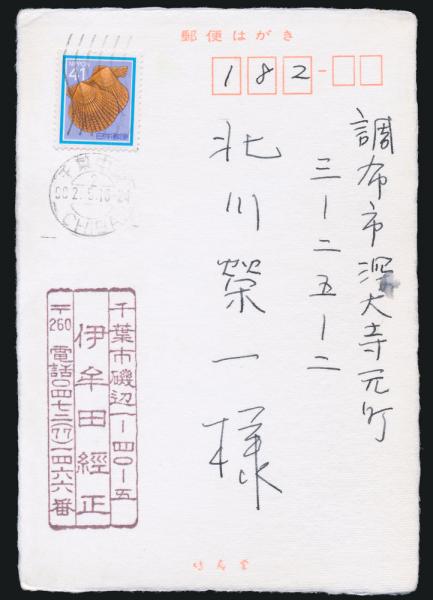 郵便はがき
182-
調布市深大寺元町
三ー二五ー二
北川榮一様
NIPPON
41
日本郵便
CHIBA
千葉市磯辺一ー四〇ー五
伊牟田經正
〒260 電話〇四七二(77)一四六六番